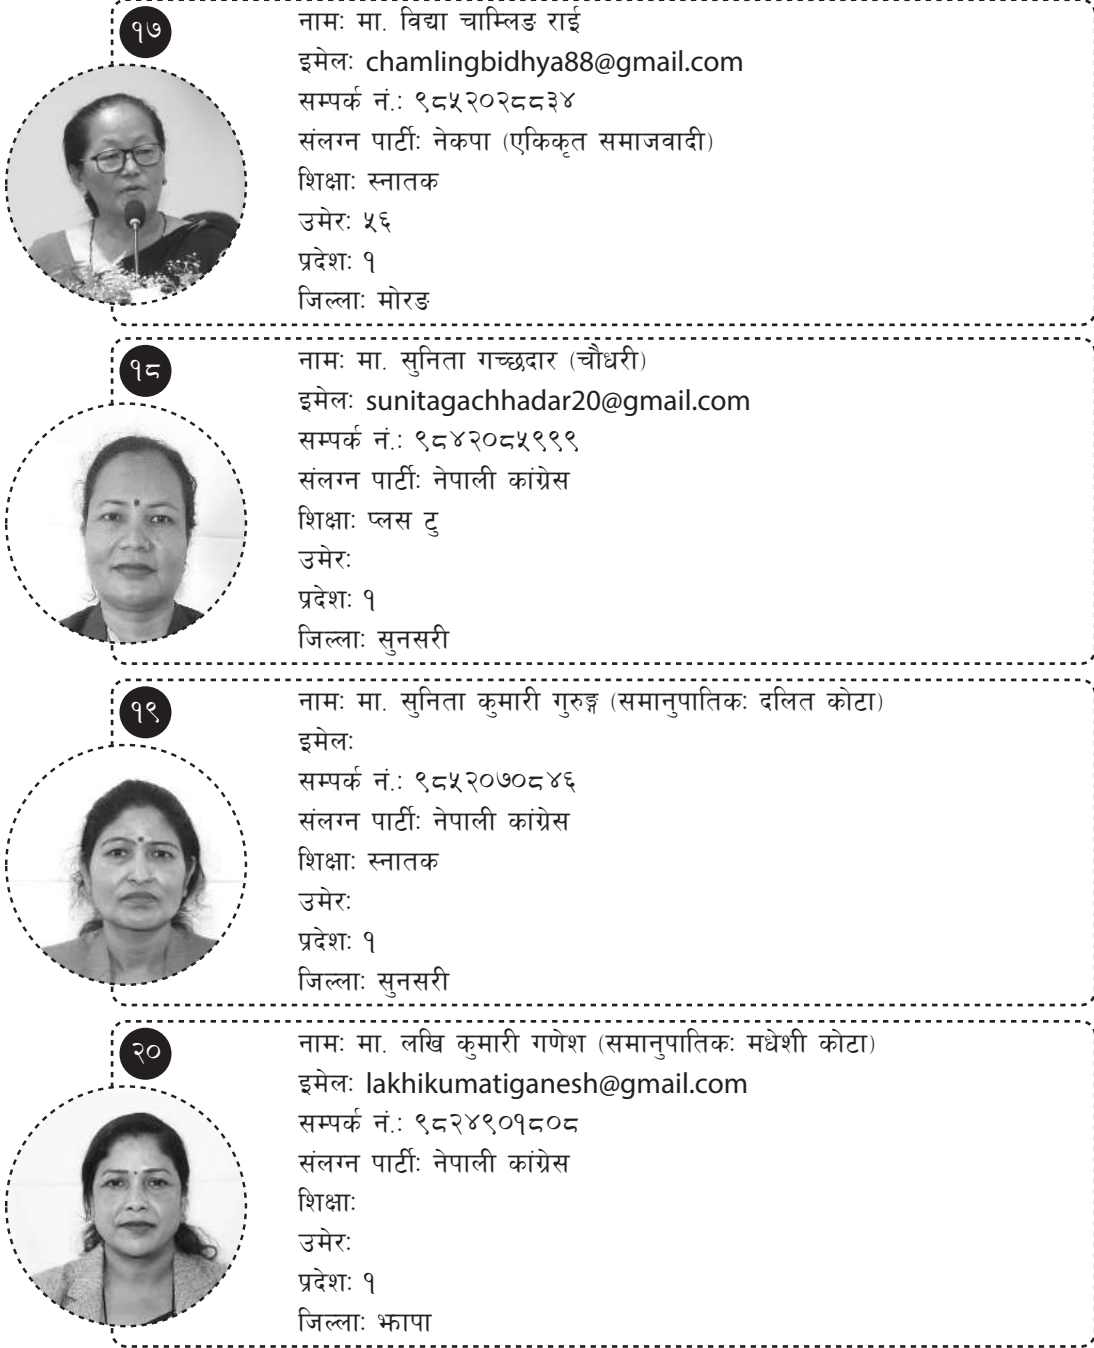 १७
नामः मा. विद्या चाम्लिङ राई
इमेलः chamlingbidhya88@gmail.com
सम्पर्क नं.: ९८५२०२८८३४
संलग्न पार्टीः नेकपा (एकिकृत समाजवादी)
शिक्षाः स्नातक
उमेरः ५६
प्रदेशः १
जिल्लाः मोरङ
१८
नामः मा. सुनिता गच्छदार (चौधरी)
इमेलः sunitagachhadar20@gmail.com
सम्पर्क नं.: ९८४२०८५९९९
संलग्न पार्टीः नेपाली कांग्रेस
शिक्षाः प्लस टु
उमेरः
प्रदेशः १
जिल्लाः सुनसरी
१९
नामः मा. सुनिता कुमारी गुरुङ्ग (समानुपातिकः दलित कोटा)
इमेलः
सम्पर्क नं.: ९८५२०७०८४६
संलग्न पार्टीः नेपाली कांग्रेस
शिक्षाः स्नातक
उमेरः
प्रदेशः १
जिल्लाः सुनसरी
२०
नामः मा. लखि कुमारी गणेश (समानुपातिकः मधेशी कोटा)
इमेलः lakhikumatiganesh@gmail.com
सम्पर्क नं.: ९८२४९०१८०८
संलग्न पार्टीः नेपाली कांग्रेस
शिक्षाः
उमेरः
प्रदेशः १
जिल्लाः झापा